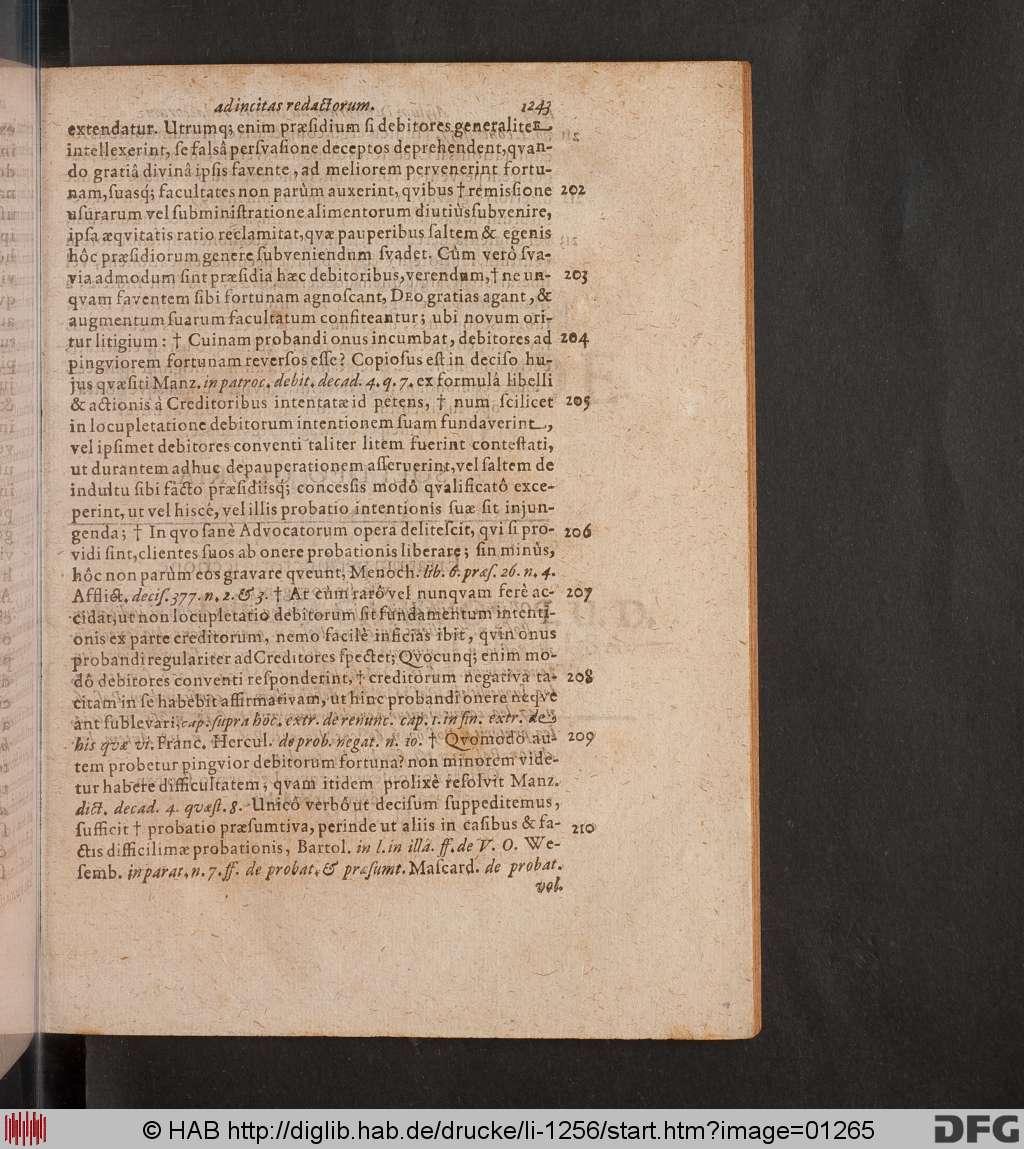 ad incitas redactorum. 1243
extendatur. Utrumq; enim præsidium si debitores generaliter
intellexerint, se falsâ persvasione deceptos deprehendent, qvan-
do gratiâ divinâ ipsis favente, ad meliorem pervenerint fortu-
nam, suasq; facultates non parùm auxerint, qvibus † remissione 202
usurarum vel subministratione alimentorum diutiùs subvenire,
ipsa æqvitatis ratio reclamitat, qvæ pauperibus saltem & egenis
hôc præsidiorum genere subveniendum svadet. Cùm verò sva-
via admodum sint præsidia hæc debitoribus, verendum, † ne un- 203
qvam faventem sibi fortunam agnoscant, DEO gratias agant, &
augmentum suarum facultatum confiteantur; ubi novum ori-
tur litigium: † Cuinam probandi onus incumbat, debitores ad 204
pingviorem fortunam reversos esse? Copiosus est in deciso hu-
jus qvæsiti Manz. in patroc. debit. decad. 4. q. 7. ex formulâ libelli
& actionis à Creditoribus intentatæ id petens, † num scilicet 205
in locupletatione debitorum intentionem suam fundaverint,
vel ipsimet debitores conventi taliter litem fuerint contestati,
ut durantem adhuc depauperationem asseruerint, vel saltem de
indultu sibi facto præsidiisq; concessis modô qvalificatô exce-
perint, ut vel hisce, vel illis probatio intentionis suæ sit injun-
genda; † In qvo sanè Advocatorum opera desitescit, qvi si pro- 206
vidi sint, clientes suos ab onere probationis liberare; sin minùs,
hôc non parùm eos gravare qveunt, Menoch. lib. 6. præs. 26. n. 4.
Afflict. decis. 377. n. 2. & 3. † At cùm rarô vel nunqvam ferè ac- 207
cidat, ut non locupletatio debitorum sit fundamentum intenti-
onis ex parte creditorum, nemo facilè inficias ibit, qvin onus
probandi regulariter ad Creditores spectet; Qvocunq; enim mo-
dô debitores conventi responderint, † creditorum negativa ta- 208
citam in se habebit affirmativam, ut hinc probandi onere neqve-
ant sublevari. cap. supra hoc. extr. de renunc. cap. 1. in fin. extr. de
his qvæ vi. Franc. Hercul. de prob. negat. n. 10. † Qvomodo au- 209
tem probetur pingvior debitorum fortuna? non minorem vide-
tur habere difficultatem, qvam itidem prolixè resolvit Manz.
dict. decad. 4. qvæst. 8. Unicô verbô ut decisum suppeditemus,
sufficit † probatio præsumtiva, perinde ut aliis in casibus & fa- 210
ctis difficilimæ probationis, Bartol. in l. in illâ. ff. de V. O. We-
semb. in parat. n. 7. ff. de probat. & præsumt. Mascard. de probat.
vol.
© HAB http://diglib.hab.de/drucke/li-1256/start.htm?image=01265
DFG